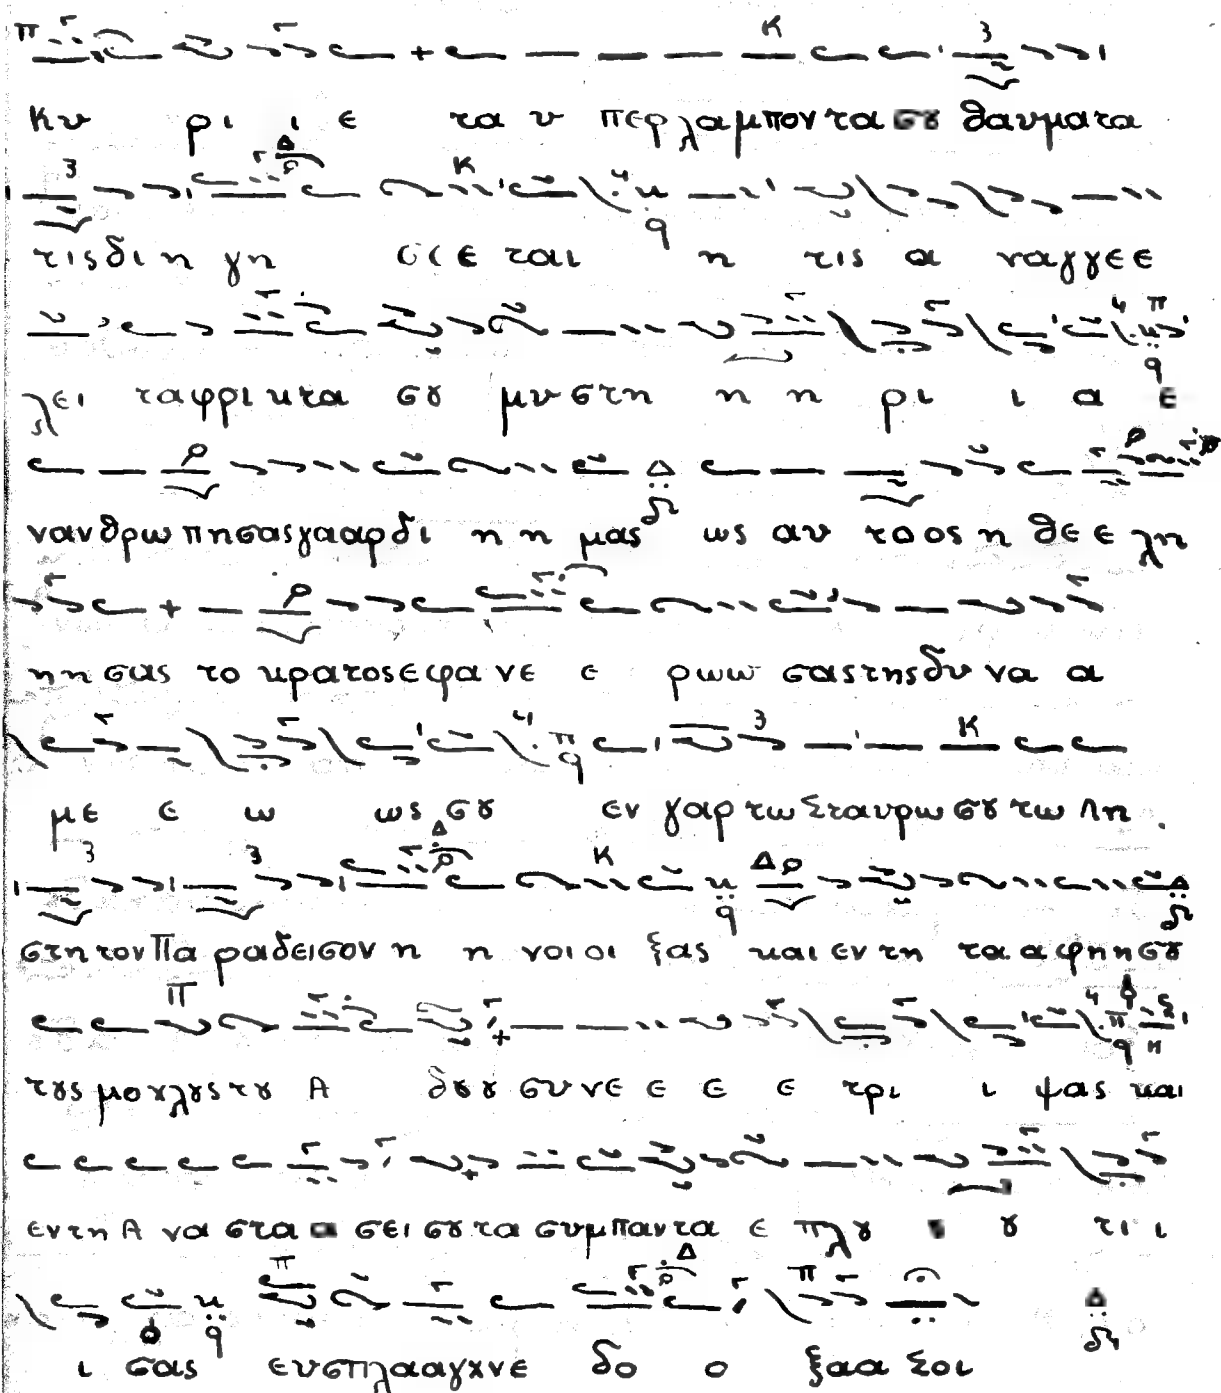 Κυ ρι ι ε τα υ περλαμποντα σȣ θαυματα
τις δι η γη σε ε ται η τις α ναγγε ε
λει τα φρικτα σȣ μυστη η η ρι ι α ε
νανθρωπησας γααρ δι η η μας ως αυ το ος η θε ε λη
η η σας το κρατος ε φα νε ε ρωω σας της δυ να α
με ε ω ως σȣ εν γαρ τω Σταυρω σȣ τω Λη
στη τον Πα ραδεισον η η νοι οι ξας και εν τη τα α φη η σȣ
τȣς μοχλȣς τȣ Α δȣ ȣ συνε ε ε ε τρι ι ψας και
εν τη Α να στα α σει σȣ τα συμπαντα ε πλȣ ȣ ȣ τι ι
ι σας ευσπλααγχνε δο ο ξαα Σοι